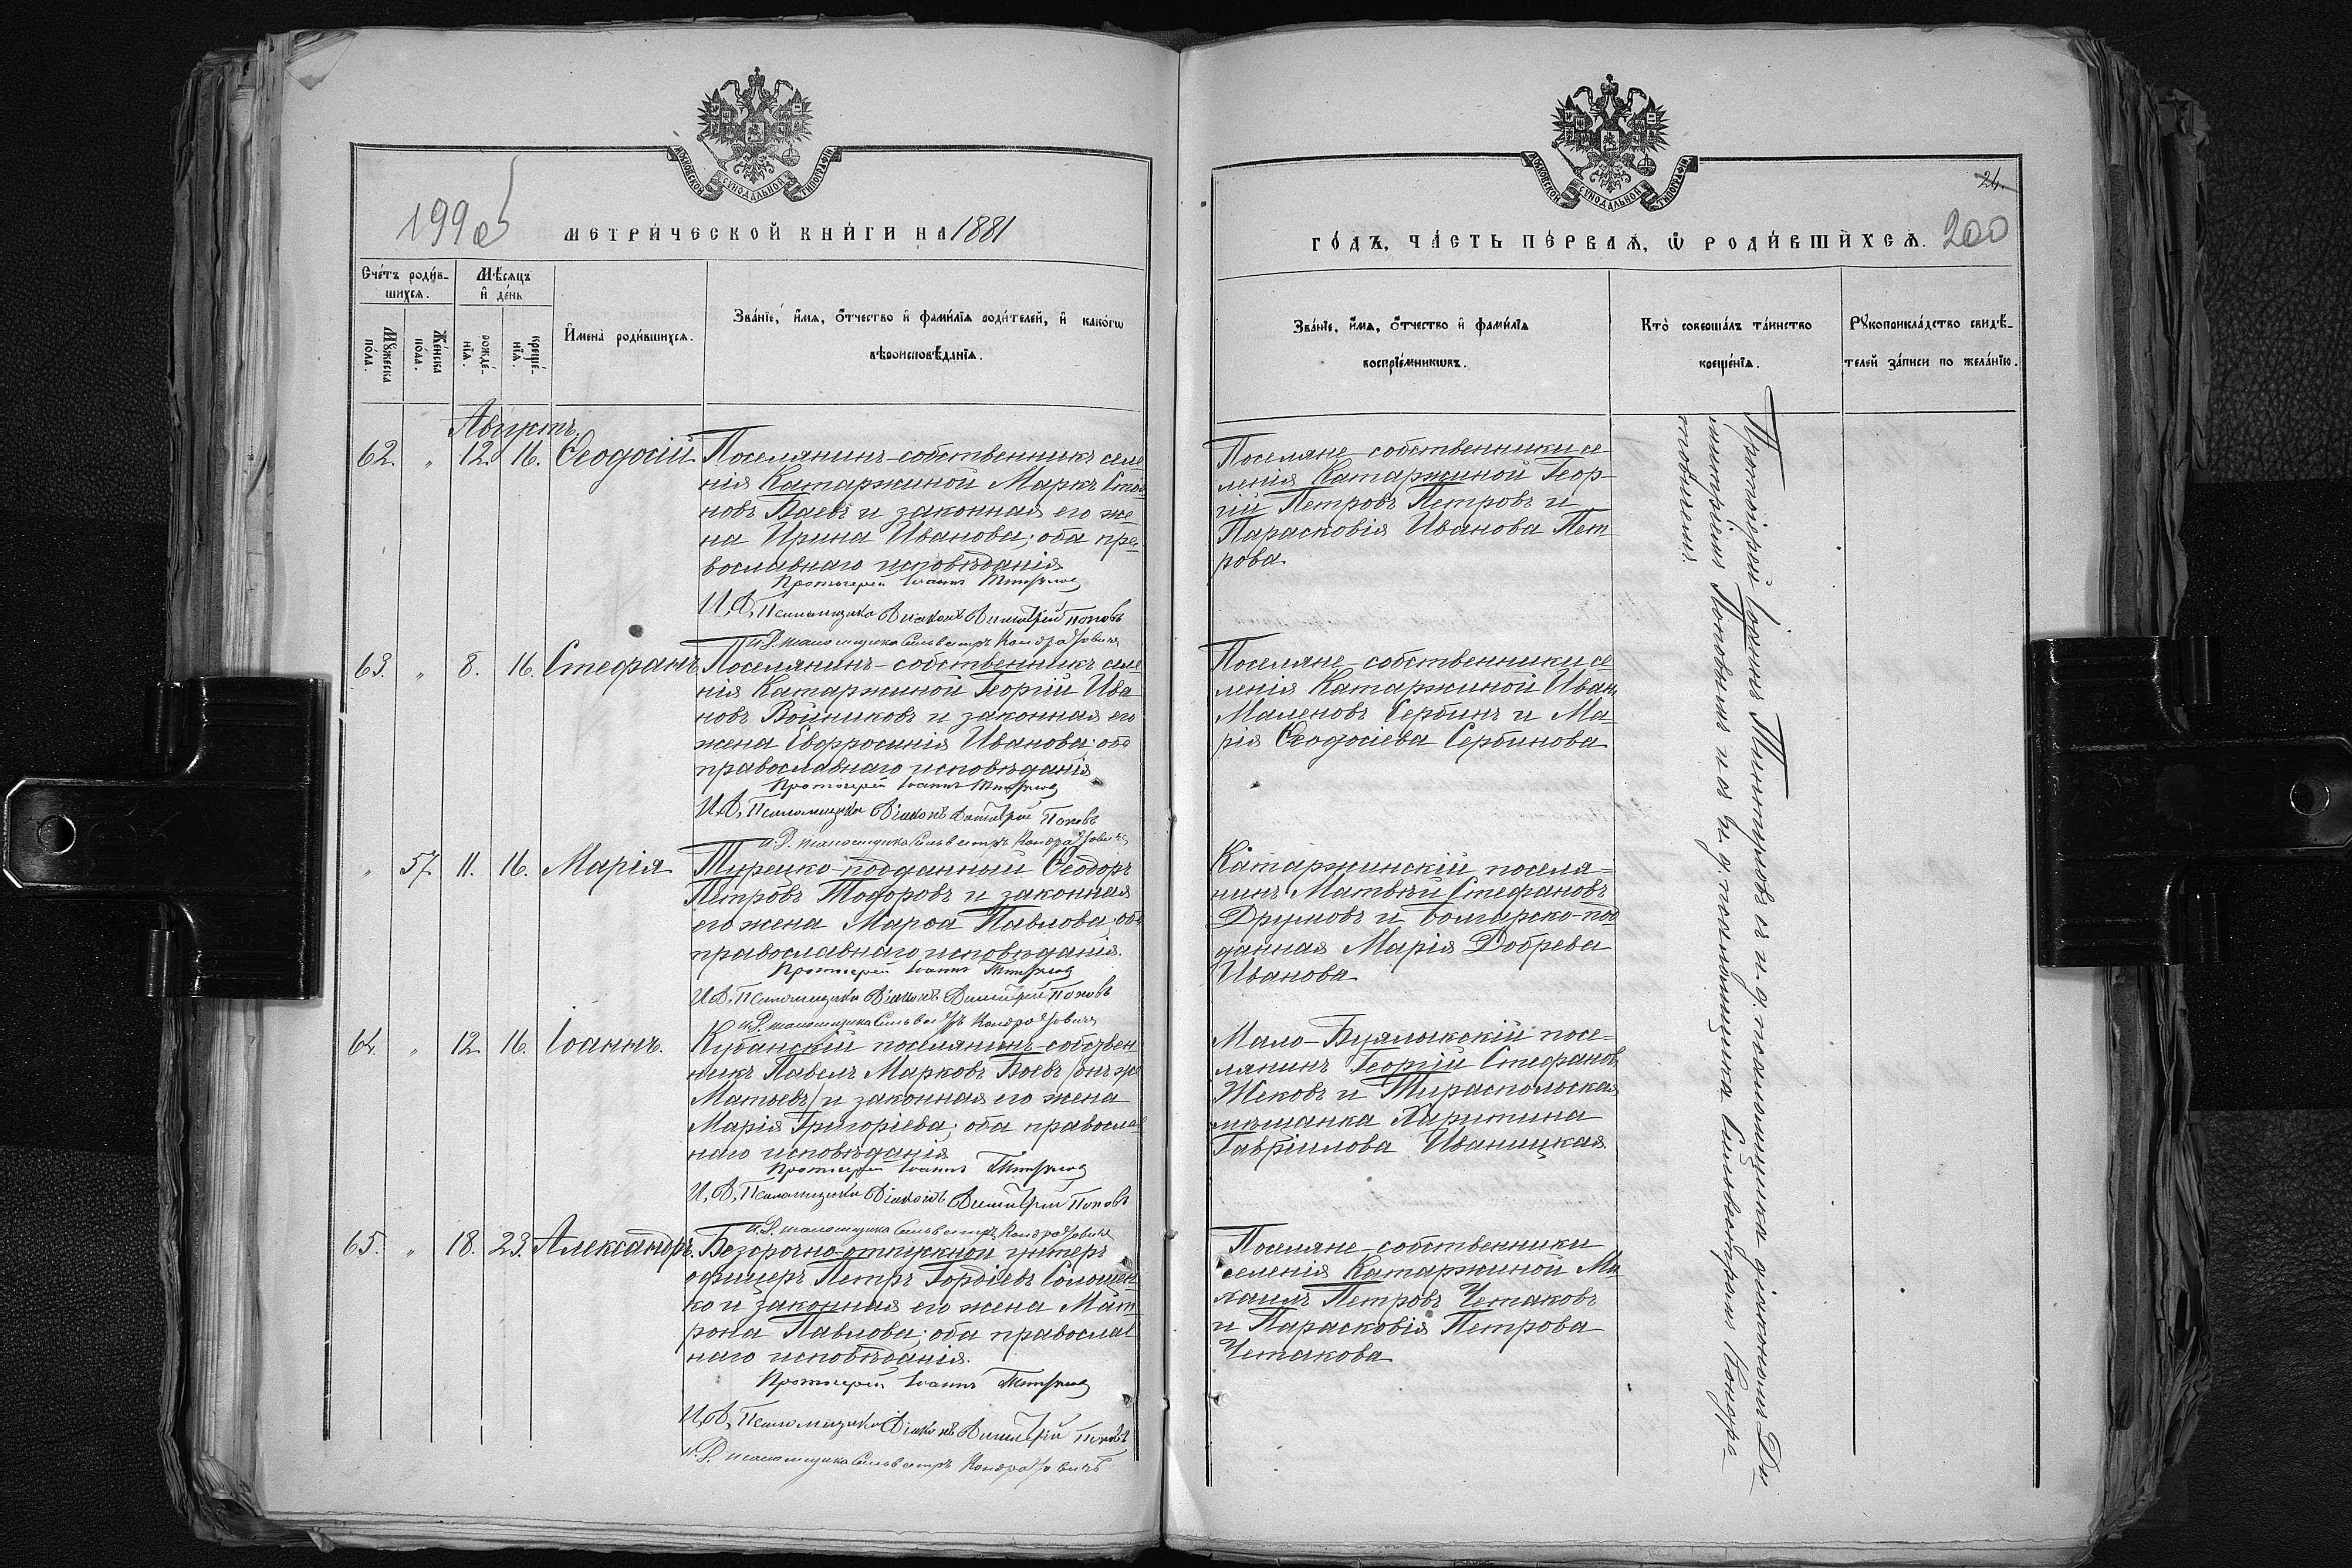 МОСКОВСКОЙ СУНОДАЛЬНОЙ ТИПОГРАФІИ
199 об
МЕТРИ́ЧЕСКОЙ КНИ́ГИ НА 1881
Сче́тъ роди́в-
шихсѧ.
Мѣ́сѧцъ
и҆ де́нь
Мꙋ́жеска
по́ла.
Же́нска
по́ла.
рожде́-
нїѧ.
креще́-
нїѧ.
И҆мена̀ роди́вшихсѧ.
Зва́нїе, и҆́мѧ, ѻ҆́тчество и҆ фами́лїѧ роди́телей, и҆ како́гѡ
вѣроисповѣ́данїѧ.
Августъ.
62. „ 12. 16. Ѳеодосій
Поселянинъ-собственникъ селе
нія Катаржиной Маркъ Стоя
новъ Баевъ и законная его же
на Ирина Иванова; оба пра
вославнаго исповѣданія
Протоіерей Іоаннъ
И.Д. Псаломщика Діаконъ Димитрій Поповъ
и.д. псаломщика Сильвестръ Кондратовичъ
63. „ 8. 16. Стефанъ
Поселянинъ-собственникъ селе
нія Катаржиной Георгій Ива
новъ Войниковъ и законная его
жена Евфросинія Иванова; оба
православнаго исповѣданія
Протоіерей Іоаннъ
И.Д. Псаломщика Діаконъ Димитрій Поповъ
и.д. псаломщика Сильвестръ Кондратовичъ
„ 57. 11. 16. Марія
Турецко-подданный Ѳеодоръ
Петровъ Тодоровъ и законная
его жена Марѳа Павлова; оба
православнаго исповѣданія.
Протоіерей Іоаннъ
И.Д. Псаломщика Діаконъ Димитрій Поповъ
и.д. псаломщика Сильвестръ Кондратовичъ
64. „ 12. 16. Іоаннъ.
Кубанскій поселянинъ-собствен
никъ Павелъ Марковъ Боевъ /онъ же
Матьевъ/ и законная его жена
Марія Григоріева; оба православ
наго исповѣданія
Протоіерей Іоаннъ
И.Д. Псаломщика Діаконъ Димитрій Поповъ
и.д. псаломщика Сильвестръ Кондратовичъ
65. „ 18. 23. Александръ.
Безсрочно-отпускной унтеръ
офицеръ Петръ Гордіевъ Солошен
ко и законная его жена Мат
рона Павлова; оба православ
наго исповѣданія.
Протоіерей Іоаннъ
И.Д. Псаломщика Діаконъ Димитрій Поповъ
и.д. псаломщика Сильвестръ Кондратовичъ
МОСКОВСКОЙ СУНОДАЛЬНОЙ ТИПОГРАФІИ
24.
ГО́ДЪ, ЧА́СТЬ ПЕ́РВАѦ, Ѡ҆ РОДИ́ВШИХСѦ. 200
Зва́нїе, и҆́мѧ, ѻ҆́тчество и҆ фами́лїѧ
воспрїе́мникѡвъ.
Кто̀ соверша́лъ та́инство
креще́нїѧ.
Рꙋкоприкла́дство свидѣ́-
телей за́писи по жела́нїю.
Поселяне-собственники се
ленія Катаржиной Геор-
гій Петровъ Петровъ и
Парасковія Иванова Пет
рова.
Поселяне-собственники се
ленія Катаржиной Иванъ
Маленовъ Сербинъ и Ма-
рія Ѳеодосіева Сербинова
Катаржинскій поселя-
нинъ Матвѣй Стефановъ
Друмовъ и болгарско-под
данная Марія Добрева
Иванова
Мало-Буялыкскій посе-
лянинъ Георгій Стефановъ
Жековъ и Тираспольская
мѣщанка Харитина
Гавріилова Иваницкая.
Поселяне-собственники
селенія Катаржиной Ми
хаилъ Петровъ Четаковъ
и Парасковія Петрова
Четакова.
Протоіерей Іоаннъ съ и. д. псаломщика діакономъ Ди
митріемъ Поповымъ и съ и. д. псаломщика Сильвестромъ Кондра
товичемъ.